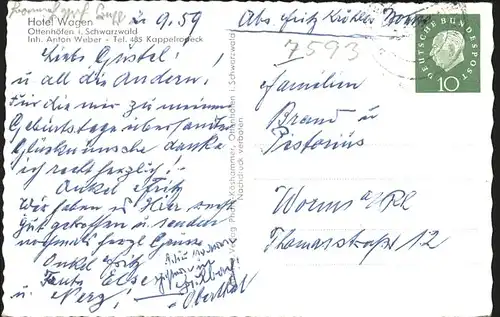 Hotel Wagen
Ottenhöfen i. Schwarzwald
Inh. Anton Weber - Tel. 485 Kappelrodeck
9.59
Abs. Fritz
7593
DEUTSCHE BUNDESPOST
10
Liebe Gustel!
u all die Andern!
Für die mir zu meinem
Geburtstage übersandten
Glückwünsche danke
ich recht herzlich!
Onkel Fritz
Wir haben es hier recht
gut getroffen u senden
nochmals herzl Grüsse
Onkel Fritz
Tante Else
u.
Familien
Brand u
Pistorius
Worms a/Rh
Thomasstraße 12
Verlag Köshammer, Ottenhöfen i. Schwarzwald
Nachdruck verboten